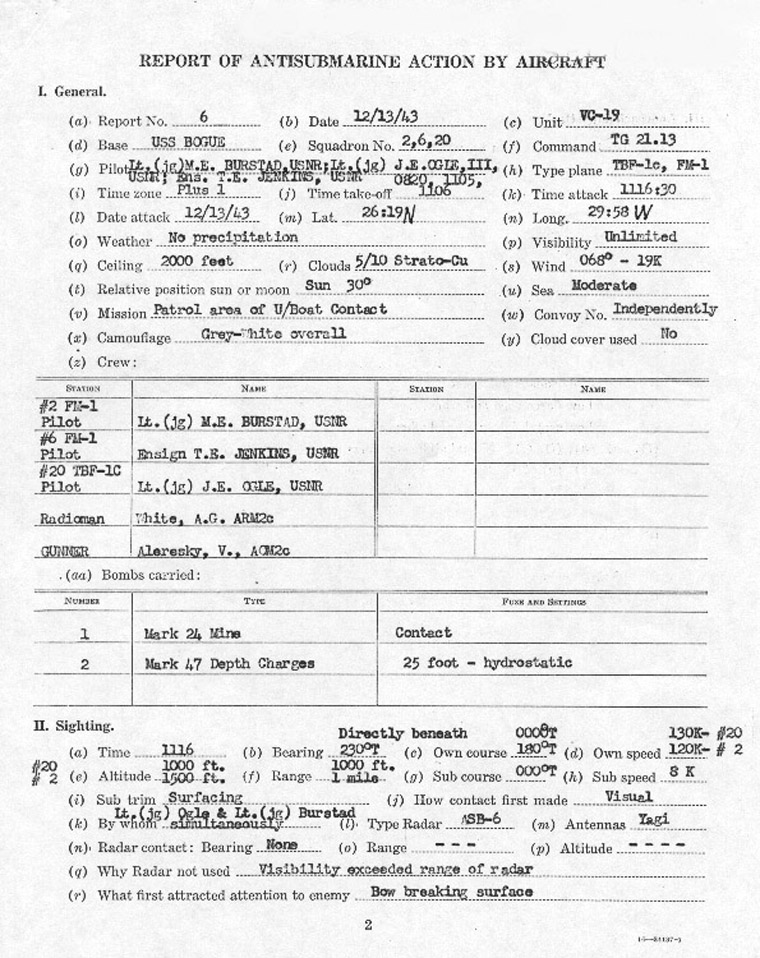 REPORT OF ANTISUBMARINE ACTION BY AIRCRAFT
I. General.
(a) Report No. 6 (b) Date 12/13/43 (c) Unit VC-19
(d) Base USS BOGUE (e) Squadron No. 2,6,20 (f) Command TG 21.13
(g) Pilot Lt.(jg)M.E. BURSTAD,USNR;Lt.(jg) J.E.OGLE,III, (h) Type plane TBF-1c, FM-1
USNR; Ens. T.E. JENKINS, USNR 0820, 1105,
(i) Time zone Plus 1 (j) Time take-off 1106 (k) Time attack 1116:30
(l) Date attack 12/13/43 (m) Lat. 26:19N (n) Long. 29:58 W
(o) Weather No precipitation (p) Visibility Unlimited
(q) Ceiling 2000 feet (r) Clouds 5/10 Strato-Cu (s) Wind 068° - 19K
(t) Relative position sun or moon Sun 30° (u) Sea Moderate
(v) Mission Patrol area of U/Boat Contact (w) Convoy No. Independently
(x) Camouflage Grey-White overall (y) Cloud cover used No
(z) Crew:
STATION NAME STATION NAME
#2 FM-1
Pilot Lt.(jg) M.E. BURSTAD, USNR
#6 FM-1
Pilot Ensign T.E. JENKINS, USNR
#20 TBF-1C
Pilot Lt.(jg) J.E. OGLE, USNR
Radioman White, A.G. ARM2c
GUNNER Aleresky, V., AOM2c
(aa) Bombs carried:
NUMBER TYPE FUZE AND SETTINGS
1 Mark 24 Mine Contact
2 Mark 47 Depth Charges 25 foot - hydrostatic
II. Sighting.
Directly beneath 000°T 130K- #20
(a) Time 1116 (b) Bearing 230°T (c) Own course 180°T (d) Own speed 120K- # 2
#20 1000 ft. 1000 ft.
# 2 (e) Altitude 1500 ft. (f) Range 1 mile (g) Sub course 000°T (h) Sub speed 8 K
(i) Sub trim Surfacing (j) How contact first made Visual
Lt.(jg) Ogle & Lt.(jg) Burstad
(k) By whom simultaneously (l) Type Radar ASB-6 (m) Antennas Yagi
(n) Radar contact: Bearing None (o) Range - - - (p) Altitude - - - -
(q) Why Radar not used Visibility exceeded range of radar
(r) What first attracted attention to enemy Bow breaking surface
2